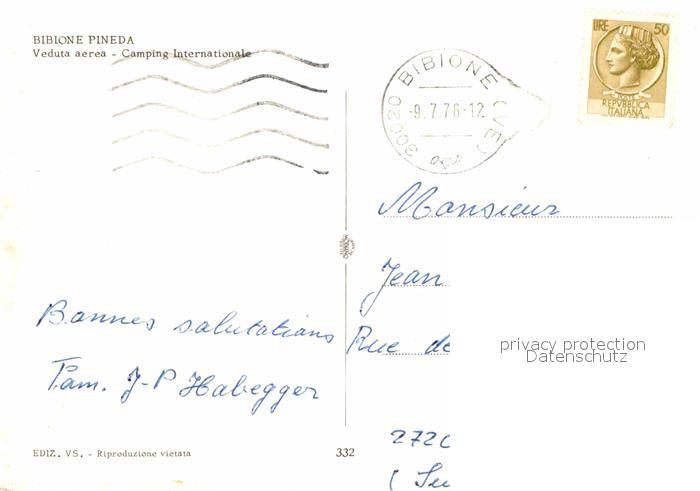 BIBIONE PINEDA
Veduta aerea - Camping Internationale
30020 BIBIONE (VE)
-9.7.76-12
LIRE 50
POSTE
REPVBBLICA
ITALIANA
Monsieur
Jean
Rue de
privacy protection
Datenschutz
272
(Su
Bonnes salutations
Fam. J-P Habegger
EDIZ. VS. - Riproduzione vietata
332